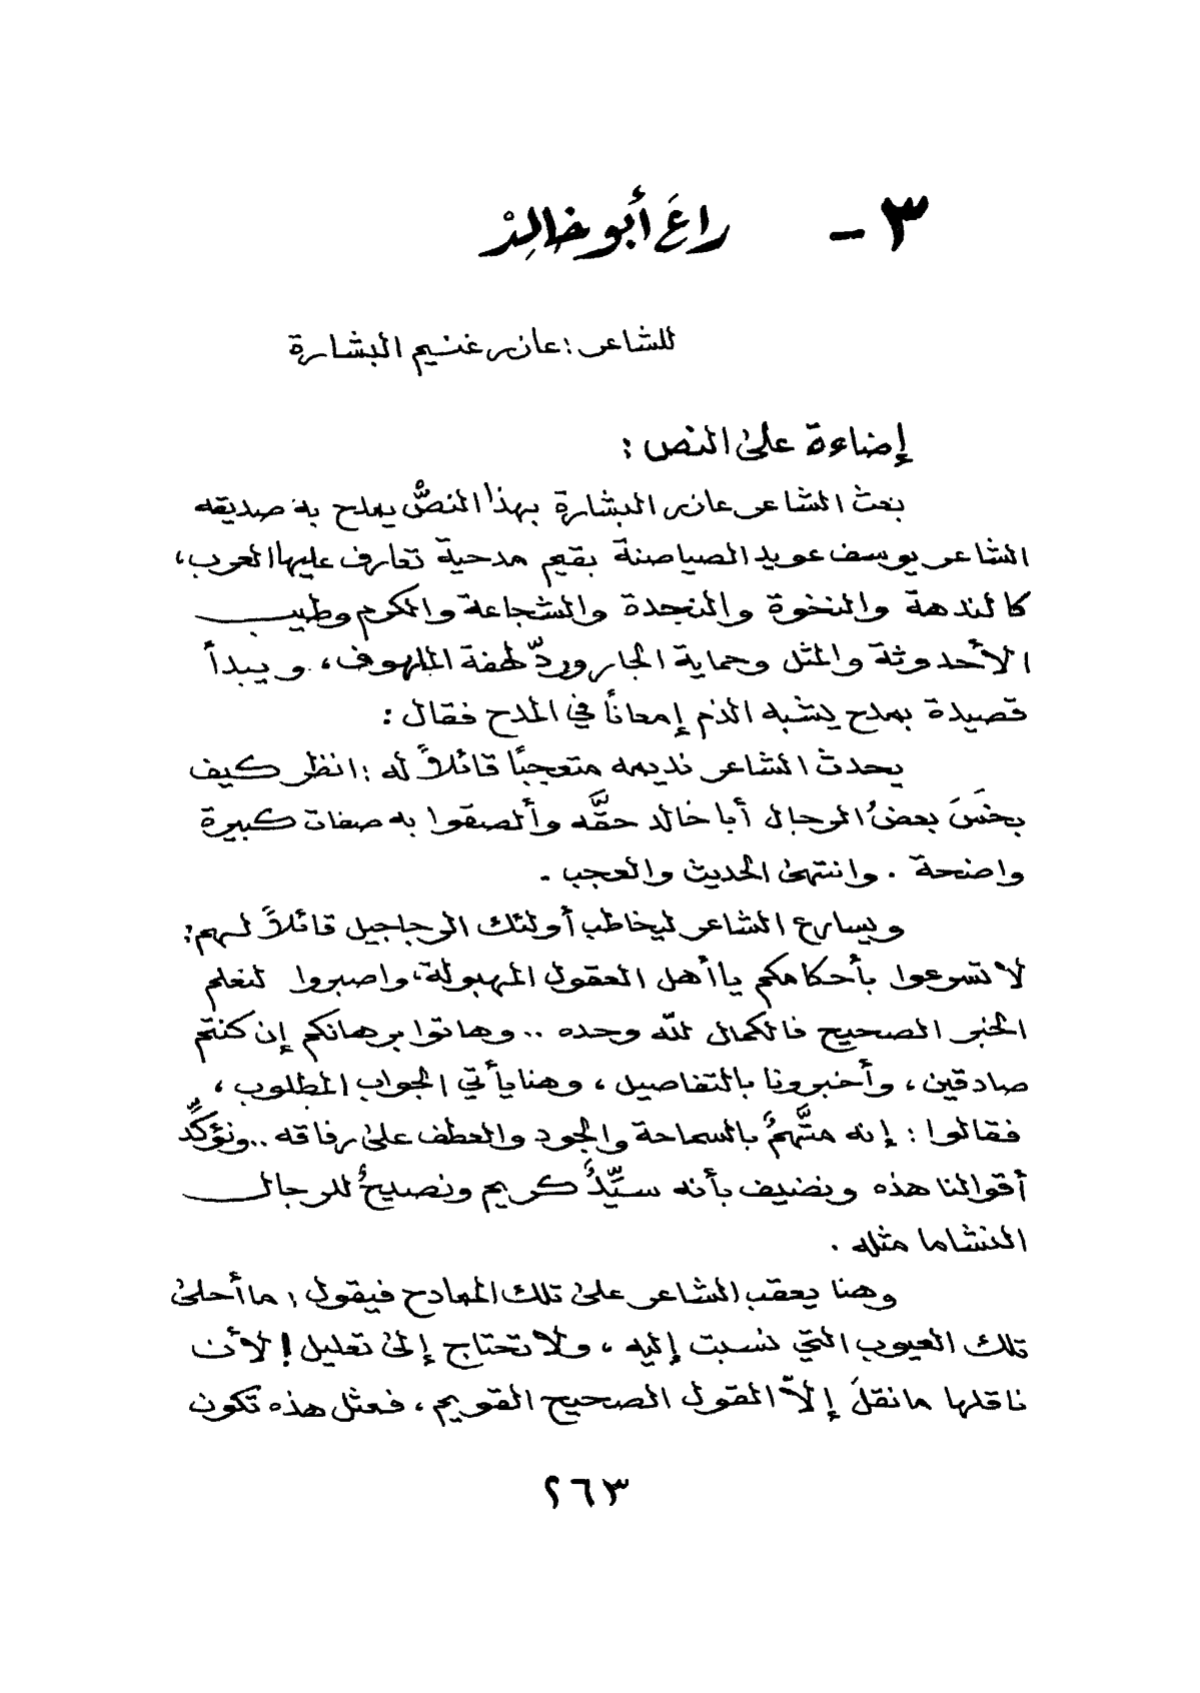 ٣ - راعَ أبو خالِدْ
للشاعر : عازر غنيم البشارة
إضاءة على النص :
بعث الشاعر عازر البشارة بهذا النصُّ يمدح به صديقه
الشاعر يوسف عويد الصياصنة بقيم مدحية تعارف عليها العرب ،
كالندهة والنخوة والنجدة والشجاعة والكرم وطيب
الأحدوثة والمثل وحماية الجار وردّ لهفة الملهوف ، ويبدأ
قصيدة بمدح يشبه الذم إمعاناً في المدح فقال :
يحدث الشاعر نديمه متعجبًا قائلاً له : انظر كيف
بخَسَ بعضُ الرجال أبا خالد حقَّه وألصقوا به صفات كبيرة
واضحة . وانتهى الحديث والعجب .
ويسارع الشاعر ليخاطب أولئك الرجاجيل قائلاً لهم :
لا تسرعوا بأحكامكم يا أهل العقول المهبولة ، واصبروا لنعلم
الخبر الصحيح فالكمال لله وحده .. وهاتوا برهانكم إن كنتم
صادقين ، وأخبرونا بالتفاصيل ، وهنا يأتي الجواب المطلوب ،
فقالوا : إنه متَّهمٌ بالسماحة والجود والعطف على رفاقه .. ونؤكِّدُ
أقوالنا هذه ونضيف بأنه سيِّدٌ كريم ونصيحٌ للرجال
النشاما مثله .
وهنا يعقب الشاعر على تلك المعادح فيقول : ما أحلى
تلك العيوب التي نسبت إليه ، ولا تحتاج إلى تعليل ! لأن
ناقلها ما نقلَ إلاّ القول الصحيح القويم ، فمثل هذه تكون
٢٦٣